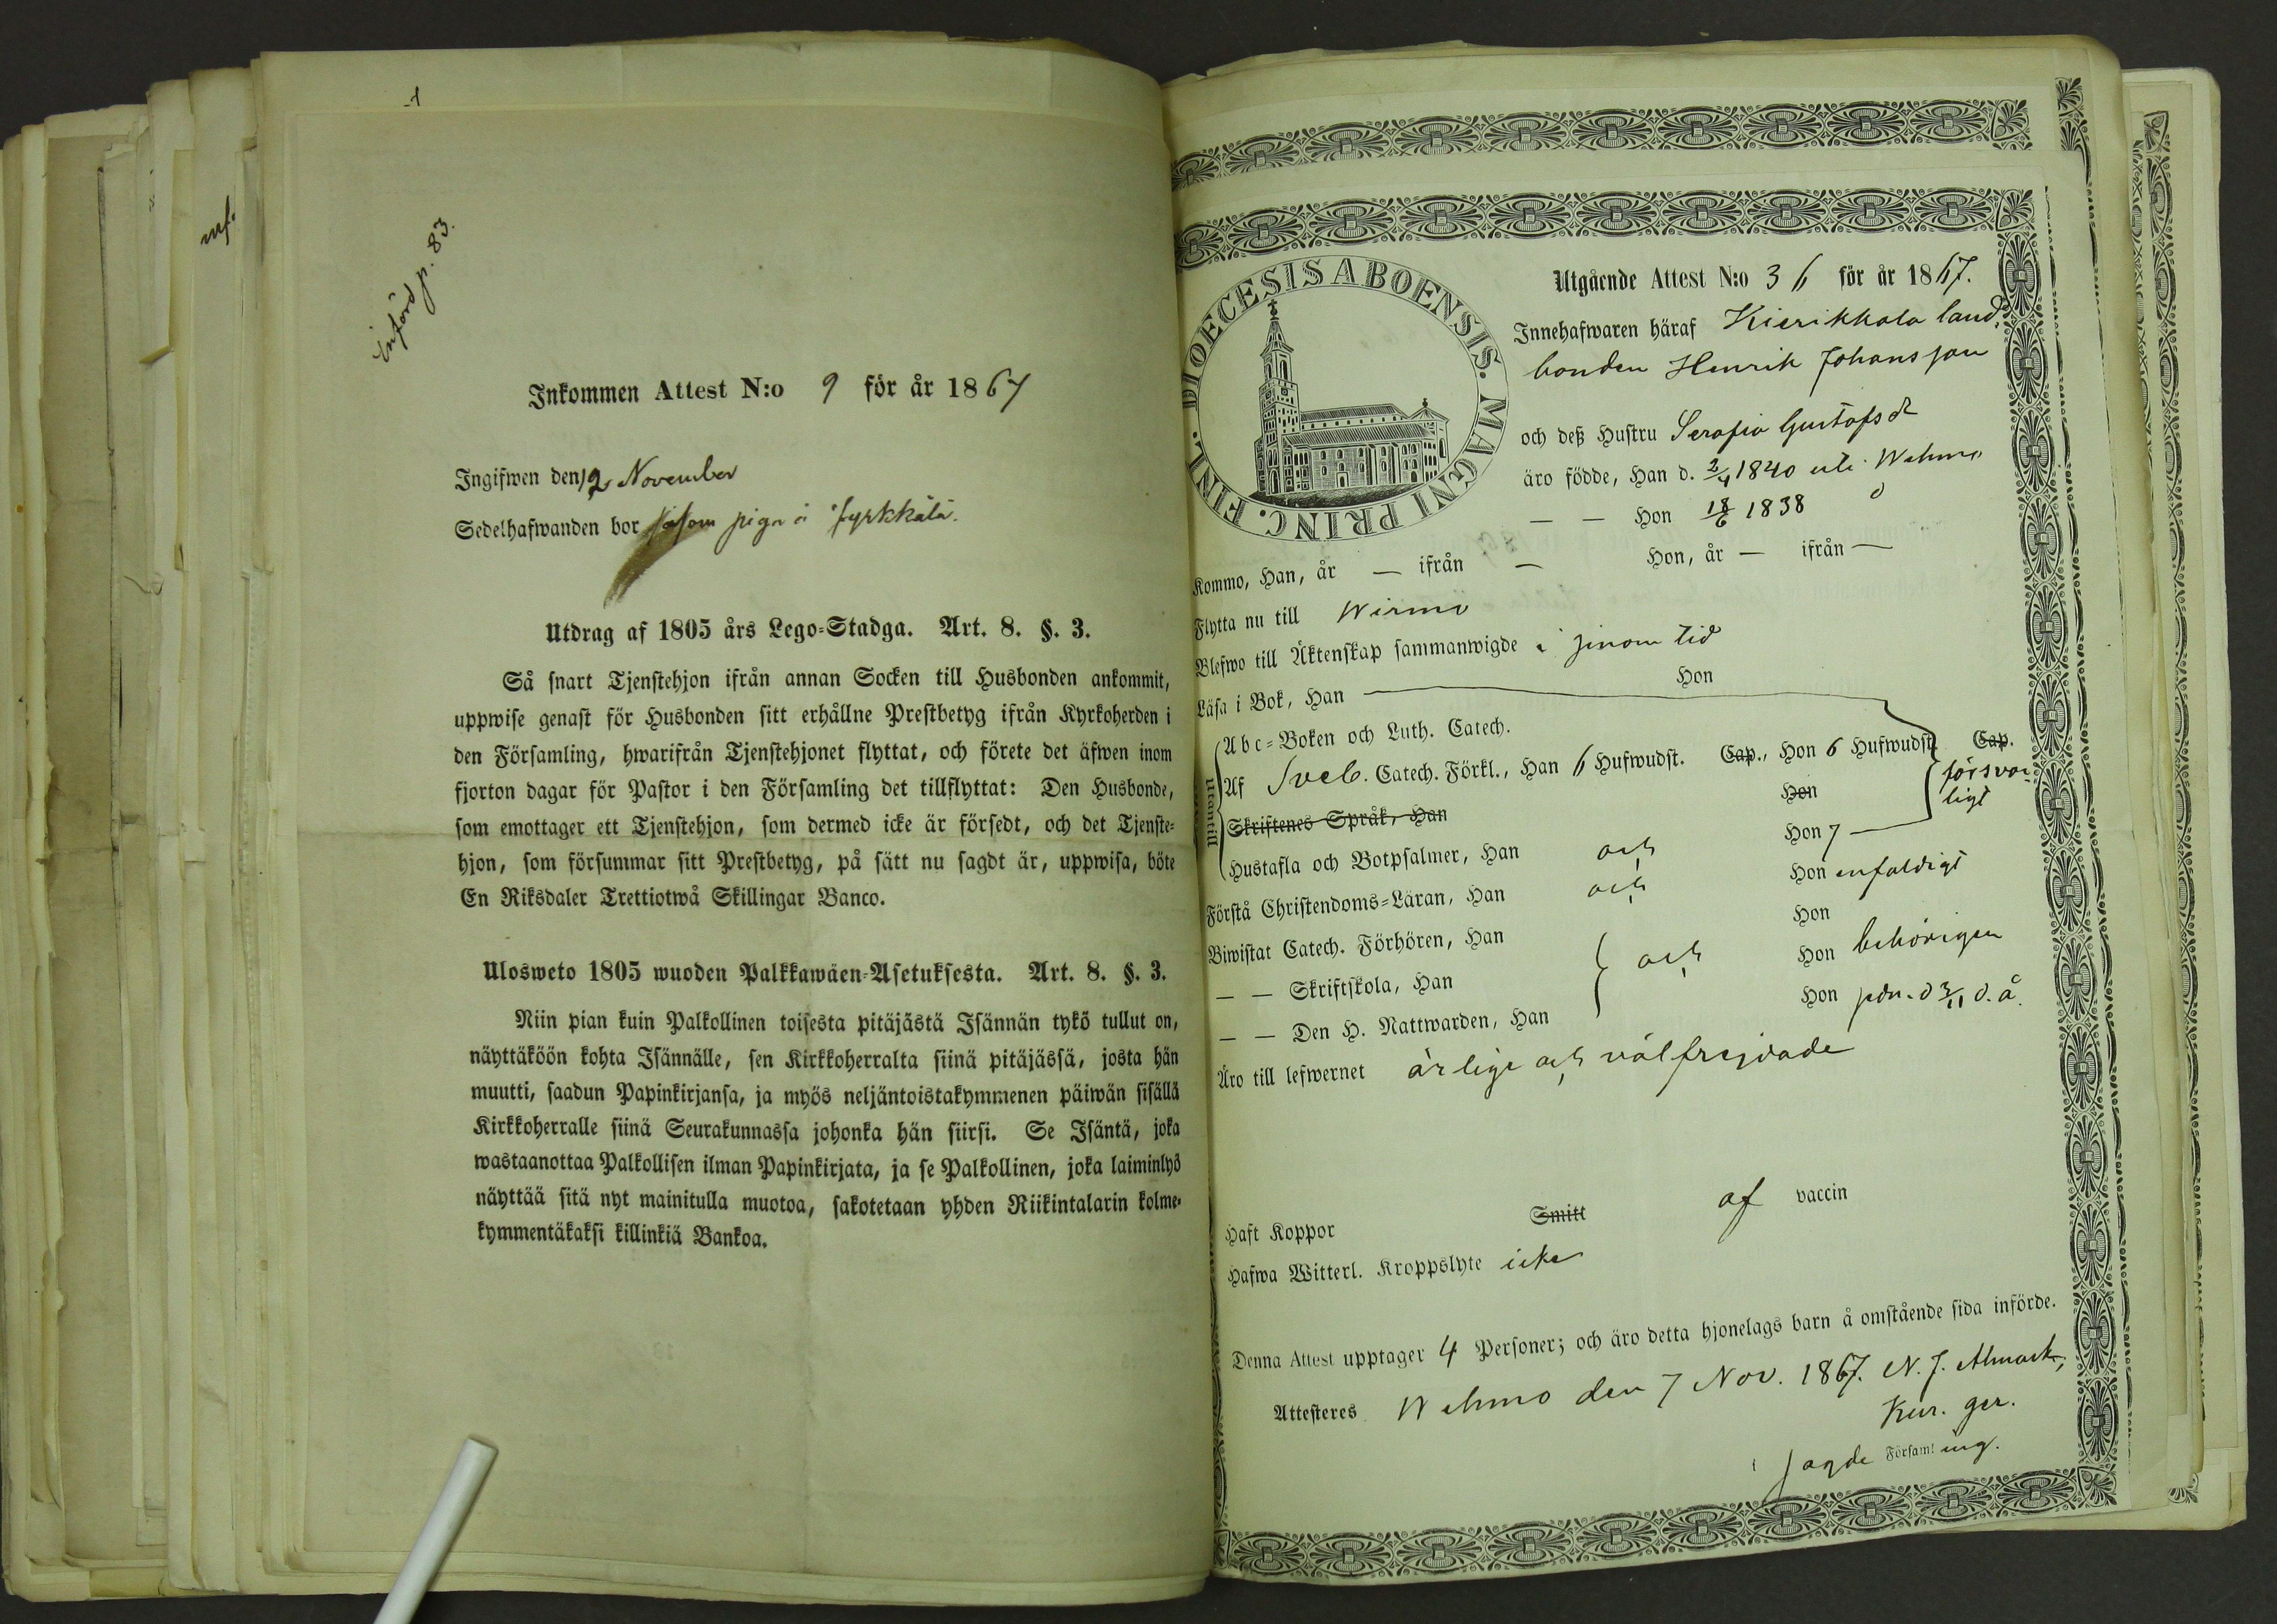 införd p. 83.
Inkommen Attest N:o 9 för år 1867
Ingifwen den 12 November
Sedelhafwanden bor såsom piga i Pyrkkälä.
Utdrag af 1805 års Lego-Stadga. Art. 8. §. 3.
Så snart Tjenstehjon ifrån annan Socken till Husbonden ankommit,
uppwise genast för Husbonden sitt erhållne Prestbetyg ifrån Kyrkoherden i
den Församling, hwarifrån Tjenstehjonet flyttat, och förete det äfwen inom
fjorton dagar för Pastor i den Församling det tillflyttat: Den Husbonde,
som emottager ett Tjenstehjon, som dermed icke är försedt, och det Tjenste-
hjon, som försummar sitt Prestbetyg, på sätt nu sagdt är, uppwisa, böte
En Riksdaler Trettiotwå Skillingar Banco.
Ulosweto 1805 wuoden Palkkawäen-Asetuksesta. Art. 8. §. 3.
Niin pian kuin Palkollinen toisesta pitäjästä Isännän tykö tullut on,
näyttäköön kohta Isännälle, sen Kirkkoherralta siinä pitäjässä, josta hän
muutti, saadun Papinkirjansa, ja myös neljäntoistakymmenen päiwän sisällä
Kirkkoherralle siinä Seurakunnassa johonka hän siirsi. Se Isäntä, joka
wastaanottaa Palkollisen ilman Papinkirjata, ja se Palkollinen, joka laiminlyö
näyttää sitä nyt mainitulla muotoa, sakotetaan yhden Riikintalarin kolme-
kymmentäkaksi killinkiä Bankoa.
DIOECESIS ABOENSIS. MAGNI PRINC. FINL.
Utgående Attest N:o 36 för år 1867.
Innehafwaren häraf Kierikkala land-
bonden Henrik Johansson
och deß Hustru Serafia Gustafsdr
äro födde, Han d. 2/4 1840 uti Wehmo
— — Hon 18/6 1838 d
Kommo, Han, år — ifrån — Hon, år — ifrån —
Flytta nu till Wirmo
Blefwo till Äktenskap sammanwigde i sinom tid
Läsa i Bok, Han Hon
Utantill
Abc-Boken och Luth. Catech.
Af Sveb. Catech. Förkl., Han 6 Hufwudst. Cap., Hon 6 Hufwudst. Cap.
försvar-
ligt
Skriftenes Språk, Han Hon
Hustafla och Botpsalmer, Han och Hon 7
Förstå Christendoms-Läran, Han och Hon enfaldigt
Biwistat Catech. Förhören, Han Hon
— — Skriftskola, Han och Hon behörigen
— — Den H. Nattwarden, Han Hon sedn. d 3/11 d. å.
Äro till lefwernet ärlige och välfrejdade
Haft Koppor Smitt af vaccin
Hafwa Witterl. Kroppslyte icke
Denna Attest upptager 4 Personer; och äro detta hjonelags barn å omstående sida införde.
Attesteres Wehmo den 7 Nov. 1867. N. J. Almark,
Kur. ger.
i sagde Församling.